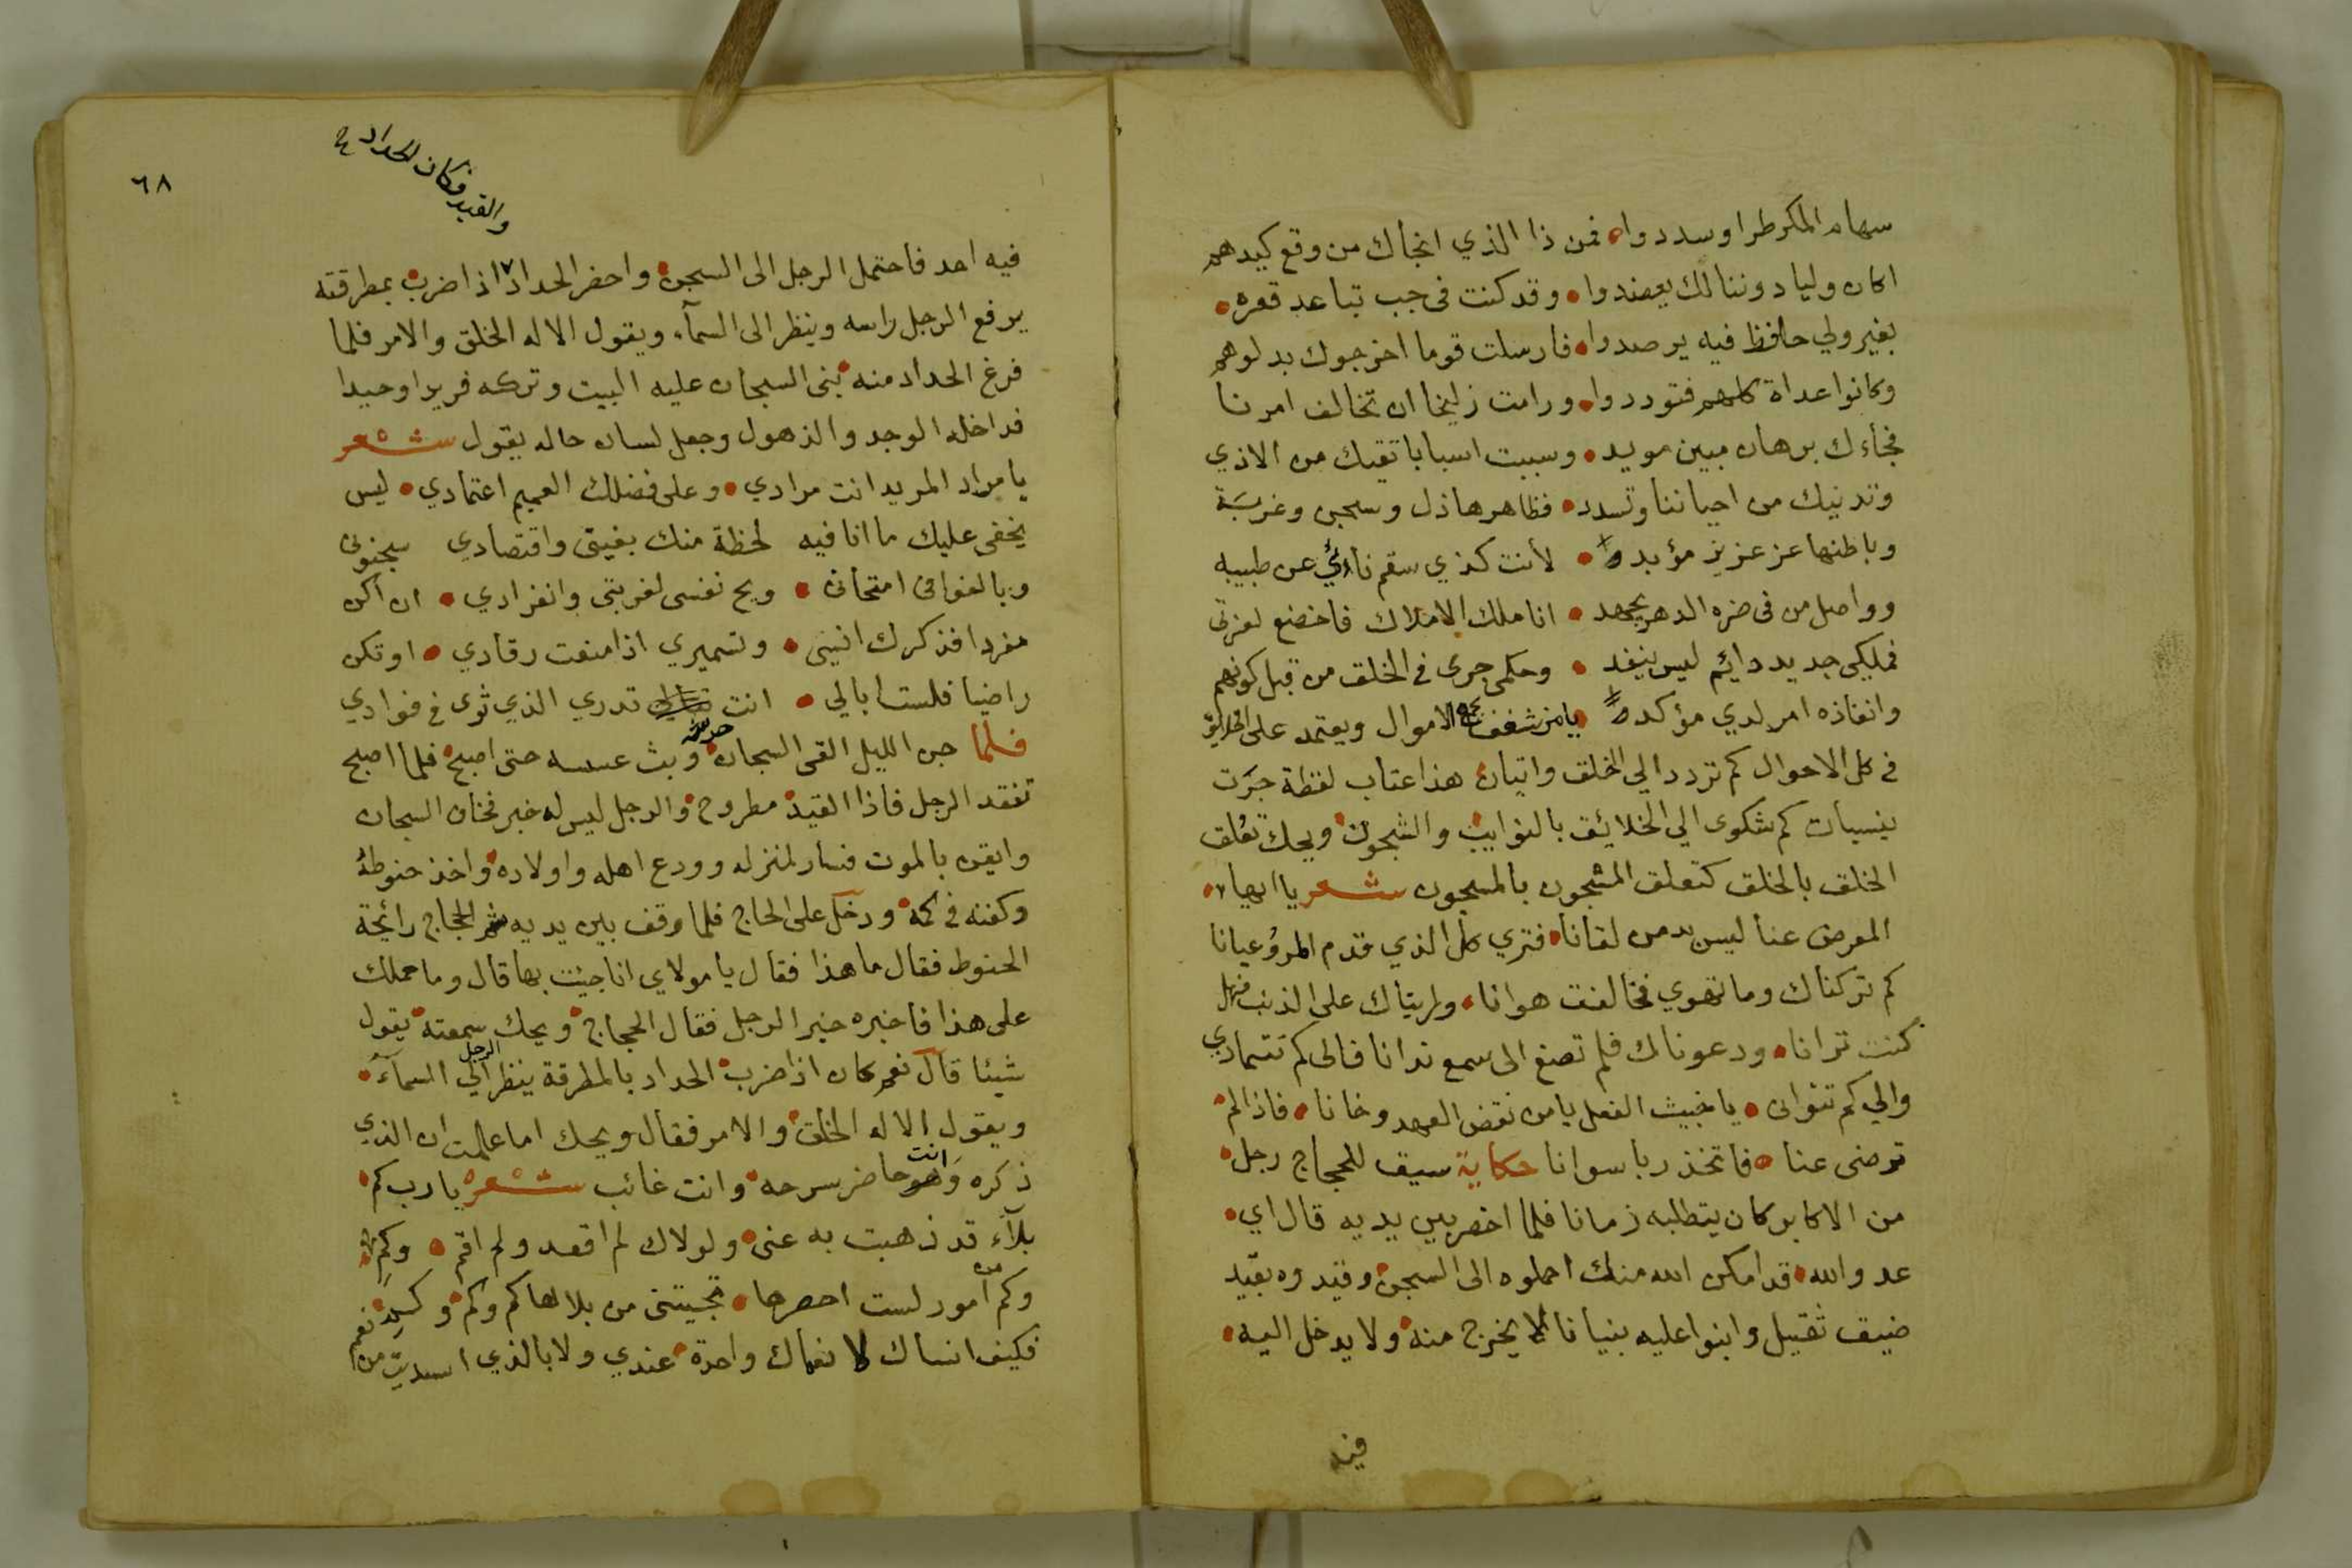 سهام المكر طرا وسددوا • فمن ذا الذي انجاك من وقع كيدهم
اكان وليا دوننا لك يعضدوا • وقد كنت فى جب تباعد قعره •
بغير ولي حافظ فيه يرصدوا • فارسلت قوما اخرجوك بدلوهم
وكانوا عداة كلهم فتوددوا • ورامت زليخا ان تخالف امرنا
فجأك برهان مبين مويد • وسببت اسبابا تقيك من الاذي
وتدنيك من احياننا وتسدد • فظاهرها ذل وسجن وغربة
وباطنها عز عزيز مؤبد • لأنت كذي سقم نائي عن طبيبه
وواصل من فى ضره الدهر يجهد • انا ملك الاملاك فاخضع لعزتى
فملكي جديد دايم ليس ينفد • وحكمي جرى في الخلق من قبل كونهم
وانفاذه امر لدي مؤكد • يا من شغف الاموال ويعتمد على الخلايق
في كل الاحوال كم تردد الي الخلق واتيان هذا عتاب لفظة جرت
بنسيات كم شكوى الي الخلائق بالنوايب والشجون ويحك تعلق
الخلق بالخلق كتعلق المشجون بالمسجون شعر يا ايها •
المعرض عنا ليس بد من لقانا • فتري كل الذي قدم المرؤ عيانا
كم تركناك وما تهوي فخالفت هوانا • ولريناك على الذنب فهل
كنت ترانا • ودعوناك فلم تصغ الى سمع ندانا فالى كم تتمادي
والي كم تتوانى • يا خبيث الفعل يا من نقض العهد وخانا • فاذا لم
ترضى عنا • فاتخذ ربا سوانا حكاية سيق للحجاج رجل •
من الاكابر كان يتطلبه زمانا فلما احضر بين يديه قال اي •
عدو الله • قد امكن الله منك احملوه الى السجن • وقيدوه بقيد
ضيق ثقيل وابنوا عليه بنيانا لا يخرج منه • ولا يدخل اليه •
فيه
٦٨
والقيد فكان الحداد ح
فيه احد فاحتمل الرجل الى السجن • واحضر الحداد اذا ضرب بمطرقته
يرفع الرجل راسه وينظر الى السمآء ويقول الا له الخلق والامر فلما
فرغ الحداد منه • بنى السجان عليه البيت وتركه فريدا وحيدا
فداخله الوجد والذهول وجعل لسان حاله يقول شعر
يا مراد المريد انت مرادي • وعلى فضلك العميم اعتمادي • ليس
يخفى عليك ما انا فيه لحظة منك بغيتى واقتصادي سجنونى
وبالغوا فى امتحانى • ويح نفسى لغربتى وانفرادي • ان اكن
مفردا فذكرك انيسى • وتسميري اذا منعت رقادي • او تكن
راضيا فلست ابالي • انت تدري الذي ثوى في فوادي
فلما جن الليل القى السجان حرسه وبث عسسه حتى اصبح • فلما اصبح
تفقد الرجل فاذا القيد مطروح • والرجل ليس له خبر فخاف السجان
وايقن بالموت فسار لمنزله وودع اهله واولاده • واخذ حنوطه
وكفنه في كمه • ودخل على الحاج فلما وقف بين يديه شم الحجاج رائحة
الحنوط فقال ما هذا فقال يا مولاي انا جيئت بها قال وما حملك
على هذا فاخبره خبر الرجل فقال الحجاج • ويحك سمعته • يقول
شيئا قال نعم كان اذا ضرب • الحداد بالمطرقة ينظر الرجل الي السمآء •
ويقول الا له الخلق • والامر فقال ويحك اما علمت ان الذي
ذكره وانت حاضر سرحه • وانت غائب شعر يا رب كم •
بلآء قد ذهبت به عنى • ولولاك لم اقعد ولم اقم • وكم
وكم امور لست احصرها • نجيتنى من بلالها كم وكم • وكم
فكيف انساك لا نعماك واحدة • عندي ولا بالذي اسديت من نعم